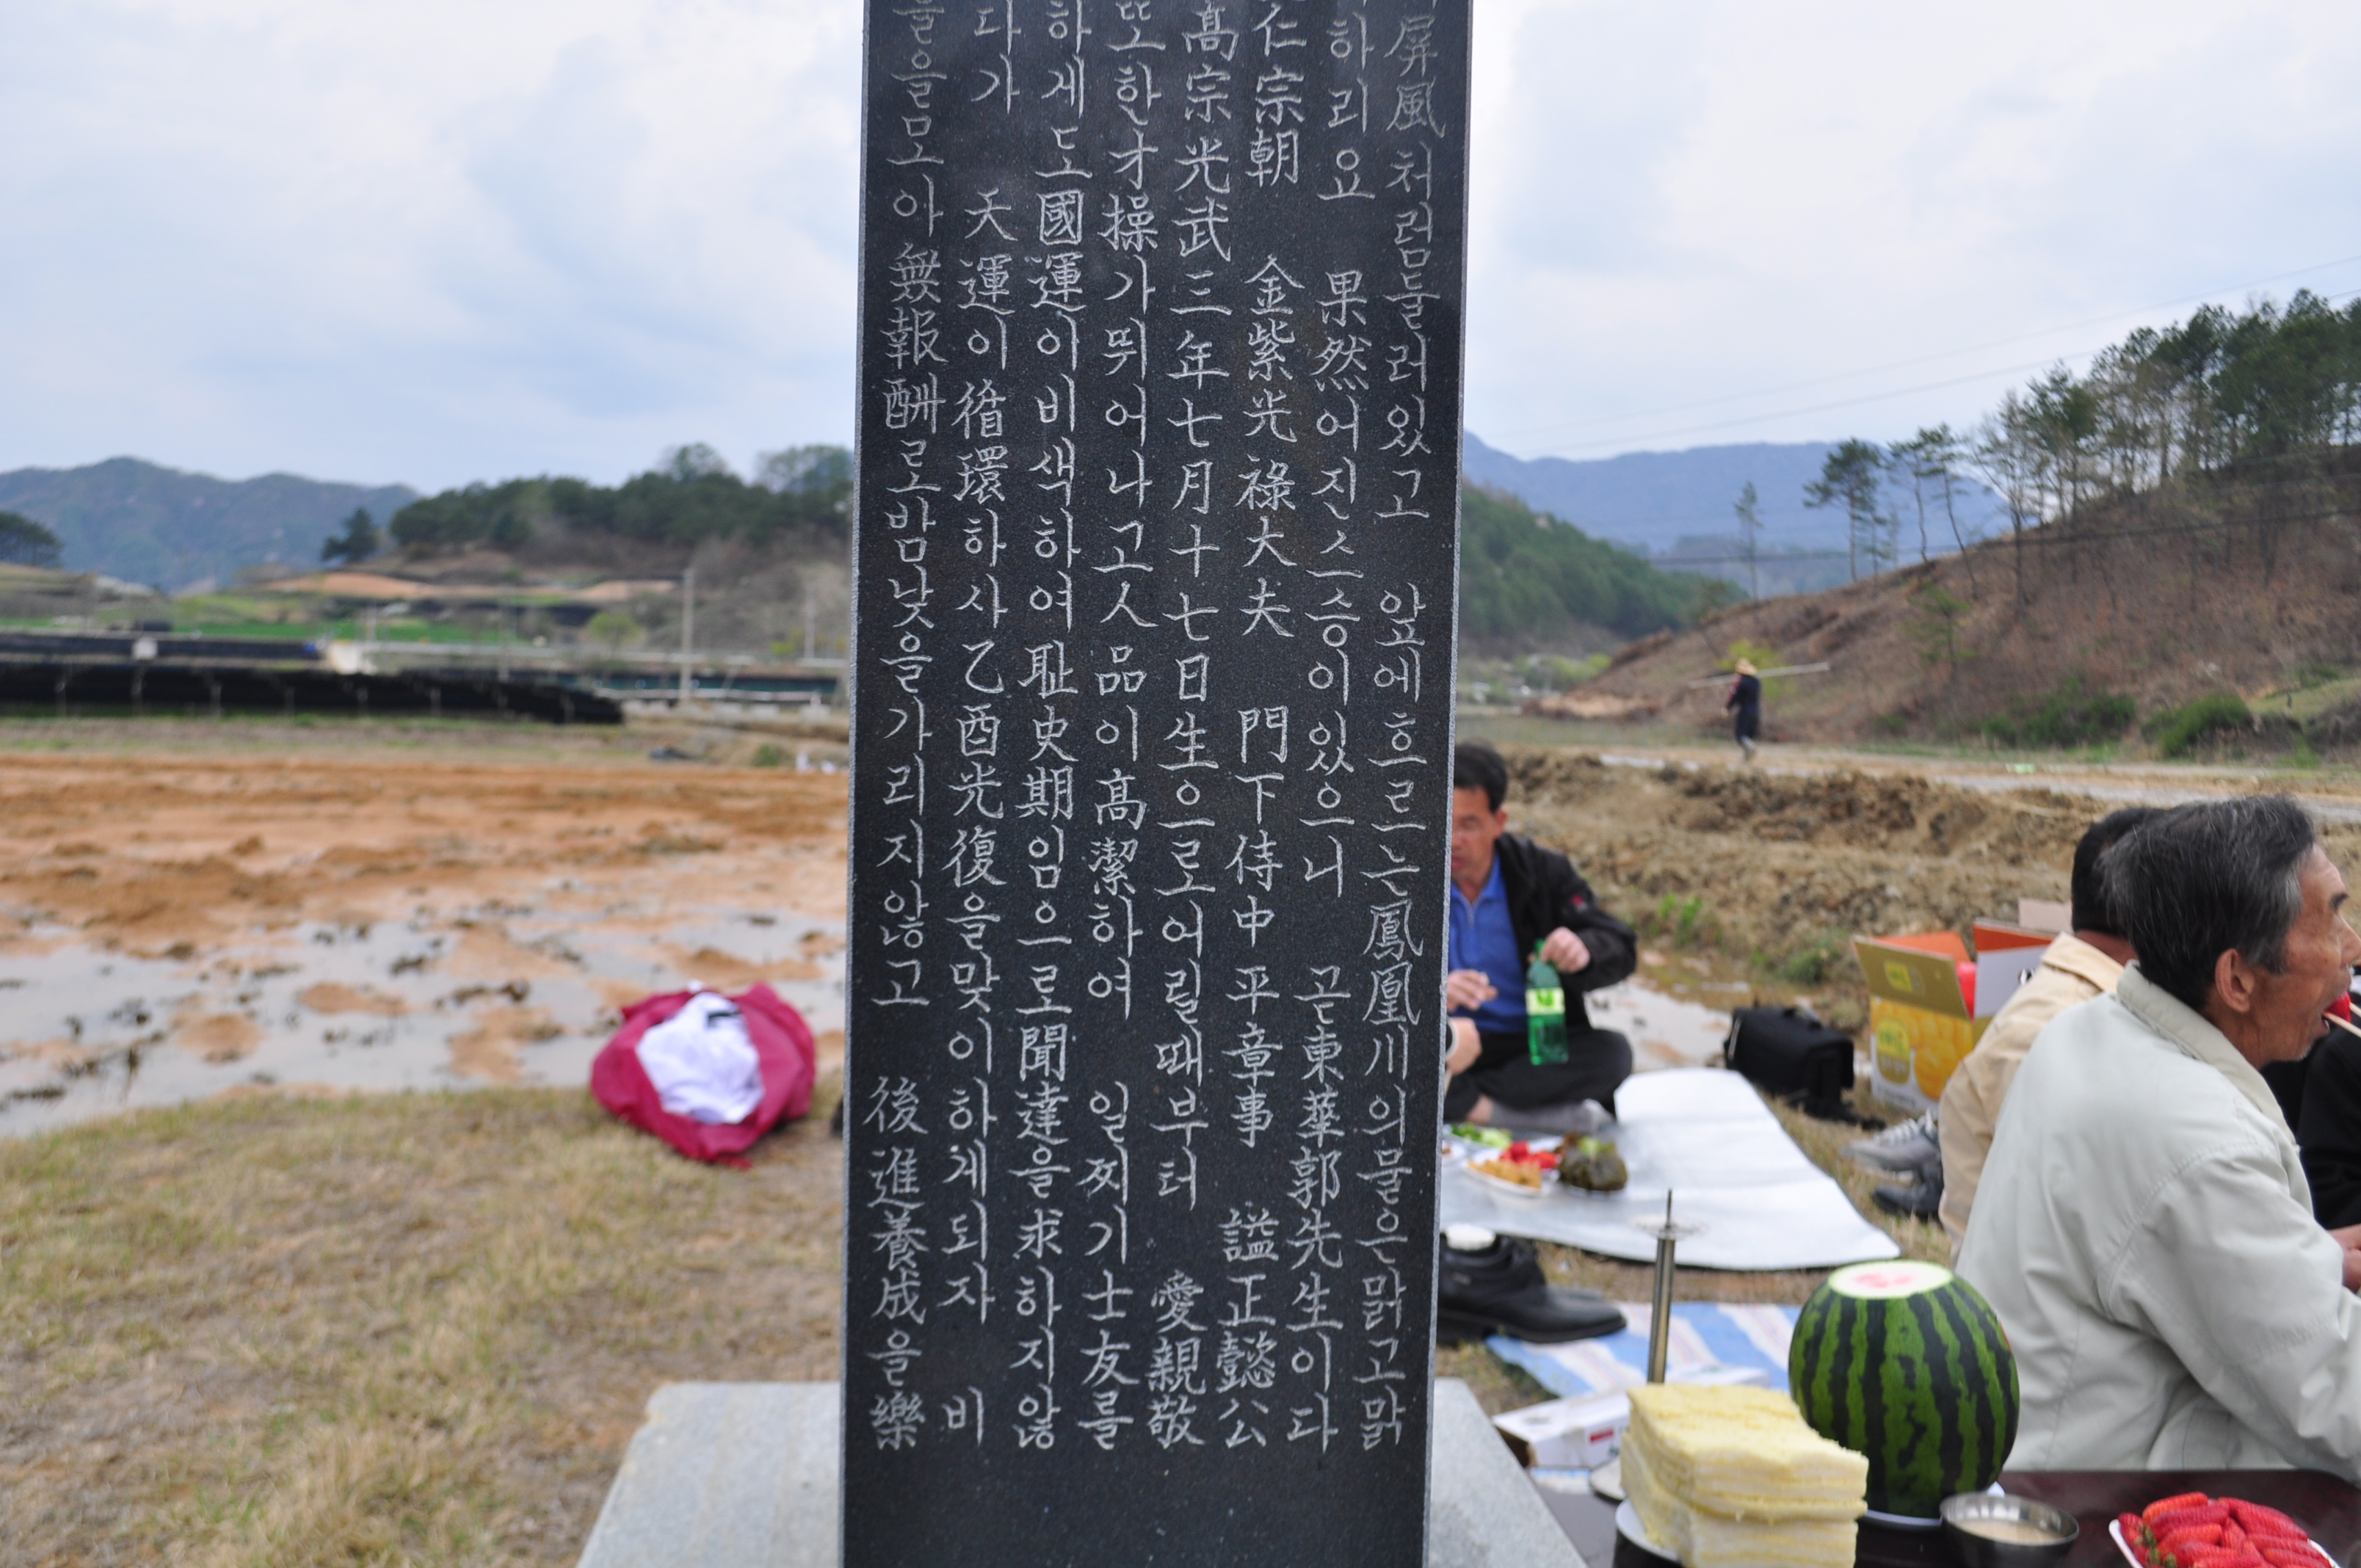 屛風처럼둘러있고 앞에흐르는鳳凰川의물은맑고맑
하리요 果然어진스승이있으니 곧東華郭先生이다
仁宗朝 金紫光祿大夫 門下侍中平章事 諡正懿公
高宗光武三年七月十七日生으로어릴때부터 愛親敬
또한才操가뛰어나고人品이高潔하여 일찌기士友를
하게도國運이비색하여耻史期임으로聞達을求하지않
다가 天運이循環하사乙酉光復을맞이하게되자 비
들을모아無報酬로밤낮을가리지않고 後進養成을樂